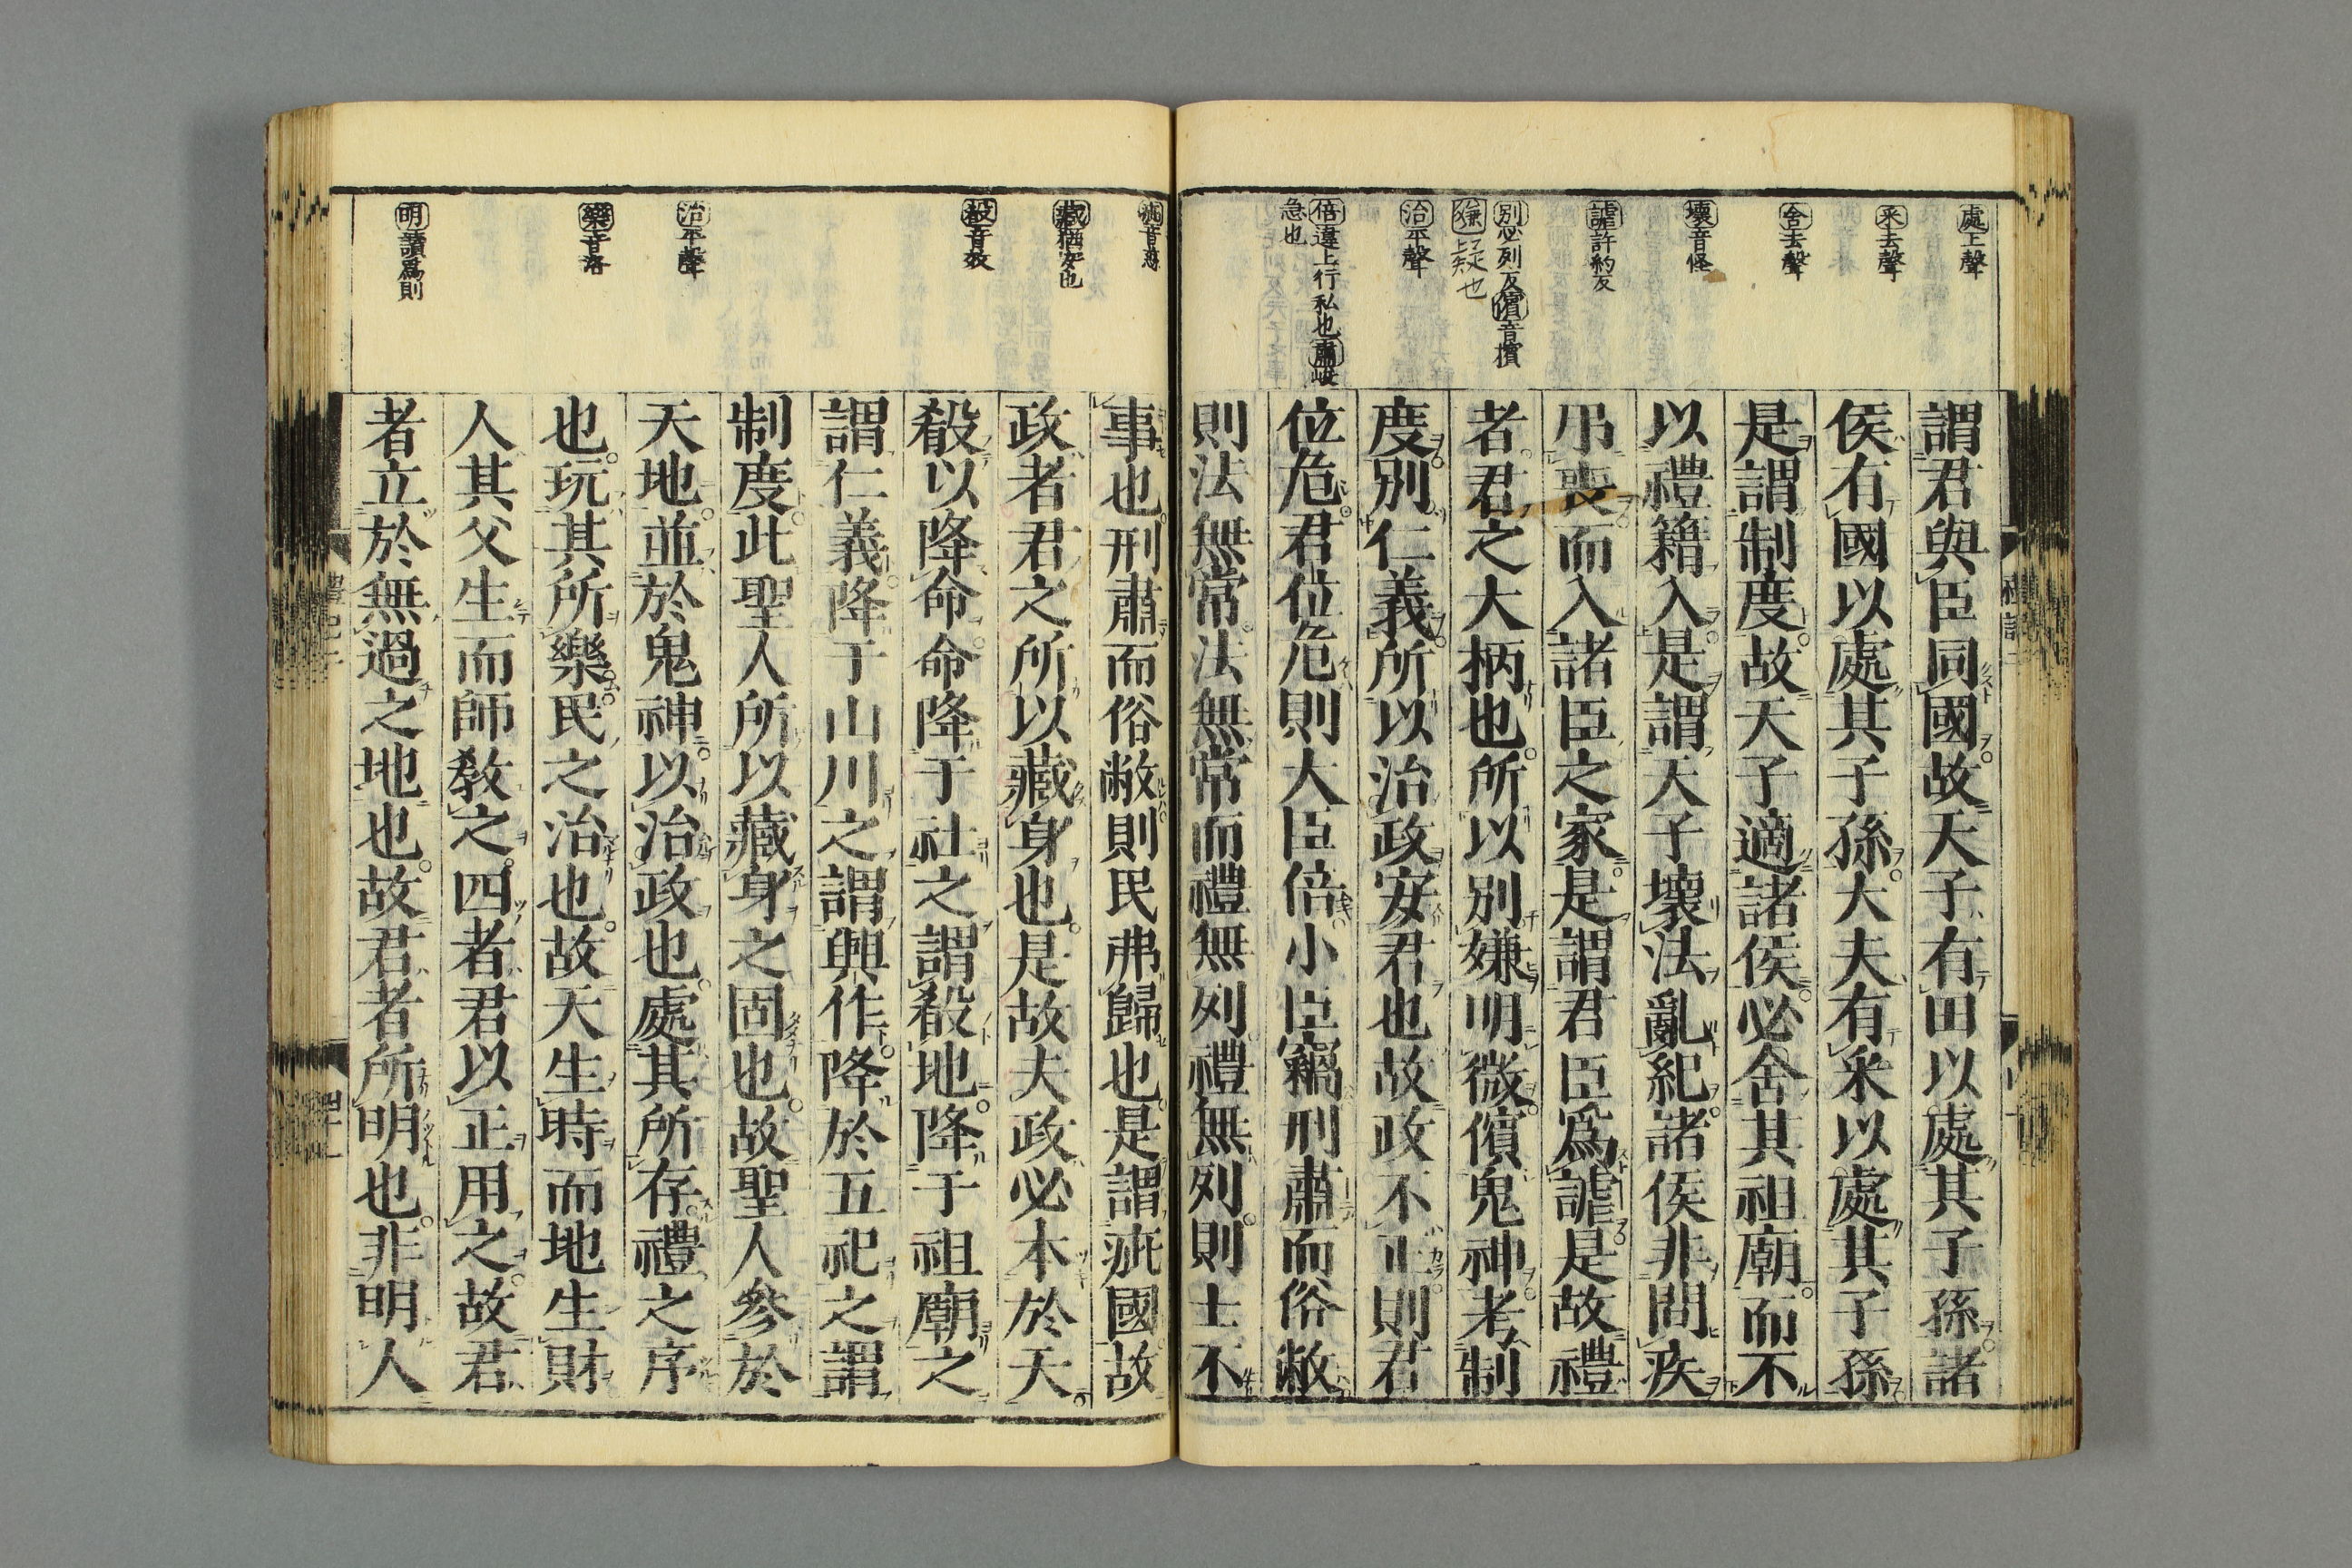 處上聲
采去聲
舍去聲
壞音怪
謔許約反
別必列反儐音擯
嫌疑也
治平聲
倍違上行私也肅峻
急也
謂君與臣同國故天子有田以處其子孫諸
侯有國以處其子孫大夫有采以處其子孫
是謂制度故天子適諸侯必舍其祖廟而不
以禮籍入是謂天子壞法亂紀諸侯非問疾
弔喪而入諸臣之家是謂君臣爲謔是故禮
者君之大柄也所以別嫌明微儐鬼神考制
度別仁義所以治政安君也故政不正則君
位危君位危則大臣倍小臣竊刑肅而俗敝
則法無常法無常而禮無列禮無列則士不
疵音慈
藏猶安也
殽音效
治平聲
樂音洛
明讀爲則
事也刑肅而俗敝則民弗歸也是謂疵國故
政者君之所以藏身也是故夫政必本於天
殽以降命命降于社之謂殽地降于祖廟之
謂仁義降于山川之謂興作降於五祀之謂
制度此聖人所以藏身之固也故聖人參於
天地並於鬼神以治政也處其所存禮之序
也玩其所樂民之治也故天生時而地生財
人其父生而師敎之四者君以正用之故君
者立於無過之地也故君者所明也非明人